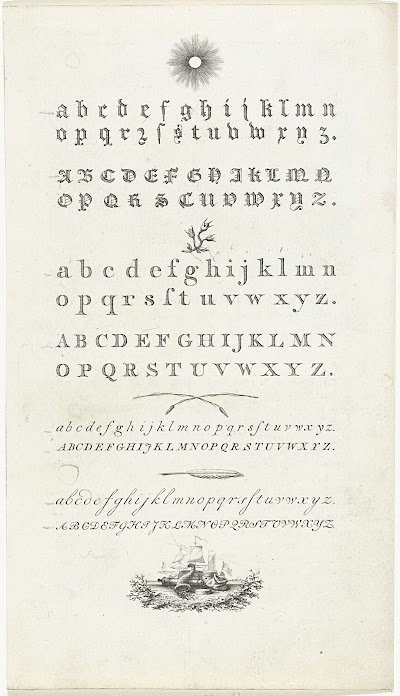 a b c d e f g h i j k l m n
o p q r ꝛ ſ s t u v w x y z.
A B C D E F G H I K L M N
O P Q R S T U V W X Y Z.
a b c d e f g h i j k l m n
o p q r s ſ t u v w x y z.
A B C D E F G H I J K L M N
O P Q R S T U V W X Y Z.
a b c d e f g h i j k l m n o p q r s ſ t u v w x y z.
A B C D E F G H I J K L M N O P Q R S T U V W X Y Z.
a b c d e f g h i j k l m n o p q r s ſ t u v w x y z.
A B C D E F G H I J K L M N O P Q R S T U V W X Y Z.